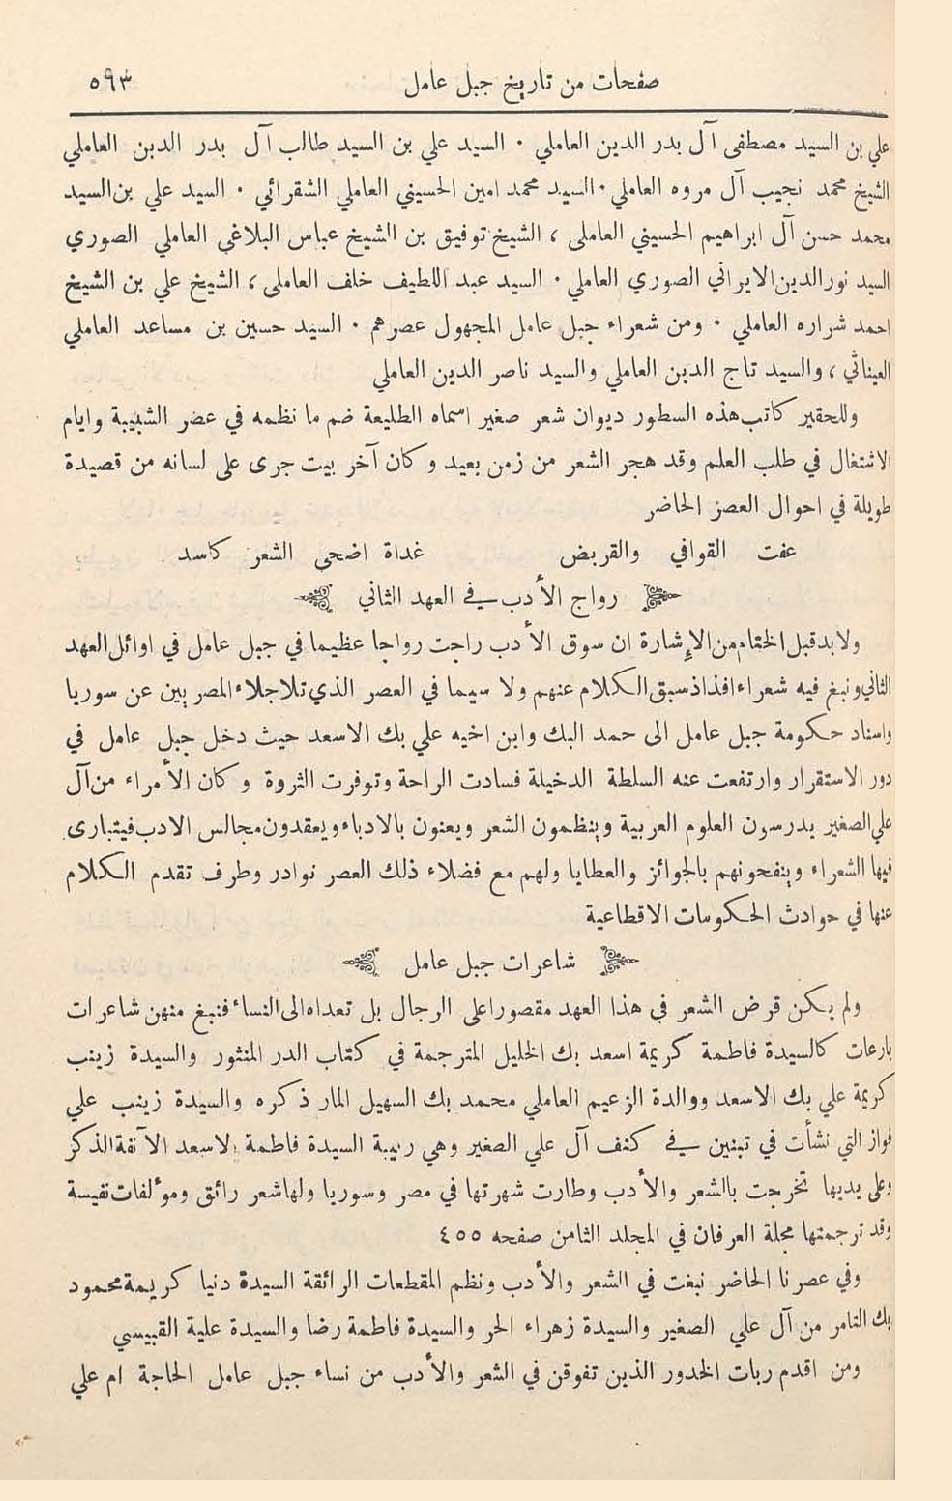 صفحات من تاريخ جبل عامل ٥٩٣
علي بن السيد مصطفى آل بدر الدين العاملي · السيد علي بن السيد طالب آل بدر الدين العاملي
الشيخ محمد نجيب آل مروه العاملي · السيد محمد امين الحسيني العاملي الشقرائي · السيد علي بن السيد
محمد حسن آل ابراهيم الحسيني العاملي ، الشيخ توفيق بن الشيخ عباس البلاغي العاملي الصوري
السيد نور الدين الايراني الصوري العاملي · السيد عبد اللطيف خلف العاملي ، الشيخ علي بن الشيخ
احمد شراره العاملي · ومن شعراء جبل عامل المجهول عصرهم · السيد حسين بن مساعد العاملي
العيناثي ، والسيد تاج الدين العاملي والسيد ناصر الدين العاملي
وللحقير كاتب هذه السطور ديوان شعر صغير اسماه الطليعة ضم ما نظمه في عصر الشبيبة وايام
الاشتغال في طلب العلم وقد هجر الشعر من زمن بعيد وكان آخر بيت جرى على لسانه من قصيدة
طويلة في احوال العصر الحاضر
عفت القوافي والقريض غداة اضحى الشعر كاسد
رواج الأدب في العهد الثاني
ولا بد قبل الختام من الإشارة ان سوق الأدب راجت رواجا عظيما في جبل عامل في اوائل العهد
الثاني ونبغ فيه شعراء افذاذ سبق الكلام عنهم ولا سيما في العصر الذي تلا جلاء المصريين عن سوريا
واسناد حكومة جبل عامل الى حمد البك وابن اخيه علي بك الاسعد حيث دخل جبل عامل في
دور الاستقرار وارتفعت عنه السلطة الدخيلة فسادت الراحة وتوفرت الثروة وكان الأمراء من آل
علي الصغير يدرسون العلوم العربية وينظمون الشعر ويعنون بالادباء ويعقدون مجالس الادب فيتبارى
فيها الشعراء وينفحونهم بالجوائز والعطايا ولهم مع فضلاء ذلك العصر نوادر وطرف تقدم الكلام
عنها في حوادث الحكومات الاقطاعية
شاعرات جبل عامل
ولم يكن قرض الشعر في هذا العهد مقصورا على الرجال بل تعداه الى النساء فنبغ منهن شاعرات
بارعات كالسيدة فاطمة كريمة اسعد بك الخليل المترجمة في كتاب الدر المنثور والسيدة زينب
كريمة علي بك الاسعد ووالدة الزعيم العاملي محمد بك السهيل المار ذكره والسيدة زينب علي
فواز التي نشأت في تبنين في كنف آل علي الصغير وهي ربيبة السيدة فاطمة الاسعد الآنفة الذكر
وعلى يديها تخرجت بالشعر والأدب وطارت شهرتها في مصر وسوريا ولها شعر رائق ومؤلفات نفيسة
وقد ترجمتها مجلة العرفان في المجلد الثامن صفحه ٤٥٥
وفي عصرنا الحاضر نبغت في الشعر والأدب ونظم المقطعات الرائقة السيدة دنيا كريمة محمود
بك التامر من آل علي الصغير والسيدة زهراء الحر والسيدة فاطمة رضا والسيدة علية القبيسي
ومن اقدم ربات الخدور الذين تفوقن في الشعر والأدب من نساء جبل عامل الحاجة ام علي